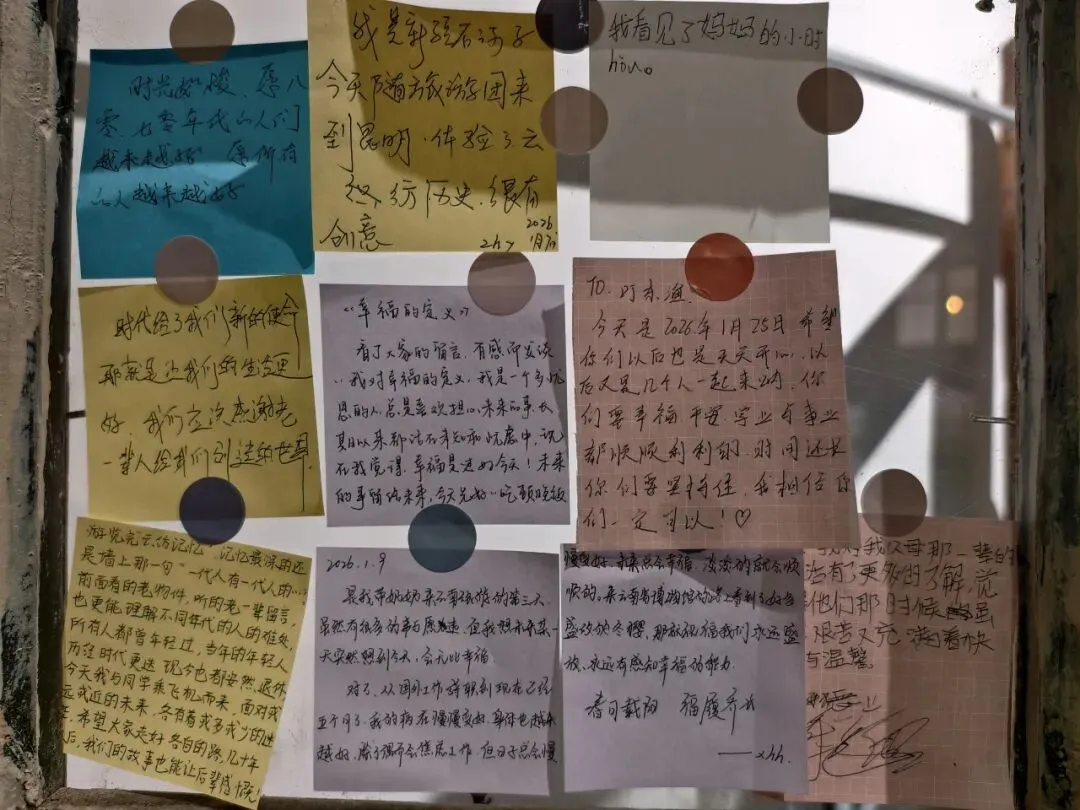 时光如梭，愿八
零、七零年代的人们
越来越好 愿所有
的人越来越好
我是新疆石河子
今天随旅游团来
到昆明.体验了云
纺历史、很有
创意
2026
zhy
我看见了妈妈的小时
hou。
时代给了我们新的使命
那就是让我们的生活更
好，我们应该感谢老
一辈人给我们创造的世界.
《幸福的定义》
看了大家的留言，有感而发谈
我对幸福的定义，我是一个多忧
思的人.总是喜欢担心未来的事.长
期以来都活在未知和忧虑中，现
在我觉得，幸福是过好今天！未来
的事留给未来，今天先好好吃顿晚饭
TO.
今天是2026年1月25日 希望
你们以后也是天天开心，以
后又是几个人一起来昆明，你
们要幸福平安.学业与事业
都顺顺利利哦.时间还长
你们要坚持住，我相信你
们一定可以！♡
游览完云仿记忆，记忆最深的还
是墙上那一句“一代人有一代人的…
前面看的老物件，听的老一辈留言，
也更能理解不同年代的人的难处，
所有人都曾年轻过，当年的年轻人
历经时代更迭 现今也都安然退休
今天我与同学乘飞机而来，面对或
远或近的未来，各有着或多或少的迷
茫，希望大家走好各自的路，几十年
后，我们的故事也能让后辈感慨！
2026.1.9
是我带奶奶来云南旅游的第三天
虽然有很多的事与愿违，但我想未来某一
天突然想到今天，会无比幸福.
对了，从国外工作辞职到现在已经
五个月了，我的病在慢慢变好，身体也越来
越好，除了偶尔会焦虑工作，但日子总会慢
慢变好，未来总会幸福，凌凌的就会顺
顺的，来云南省博物馆的路上看到了好多
盛放的冬樱，那就祝福我们永远盛
放，永远有感知幸福的能力.
春日载阳 福履齐长
——xhh.
我对我父母那一辈的
活有了更多的了解，觉
他们那时候虽
艰苦又充满着快
与温馨